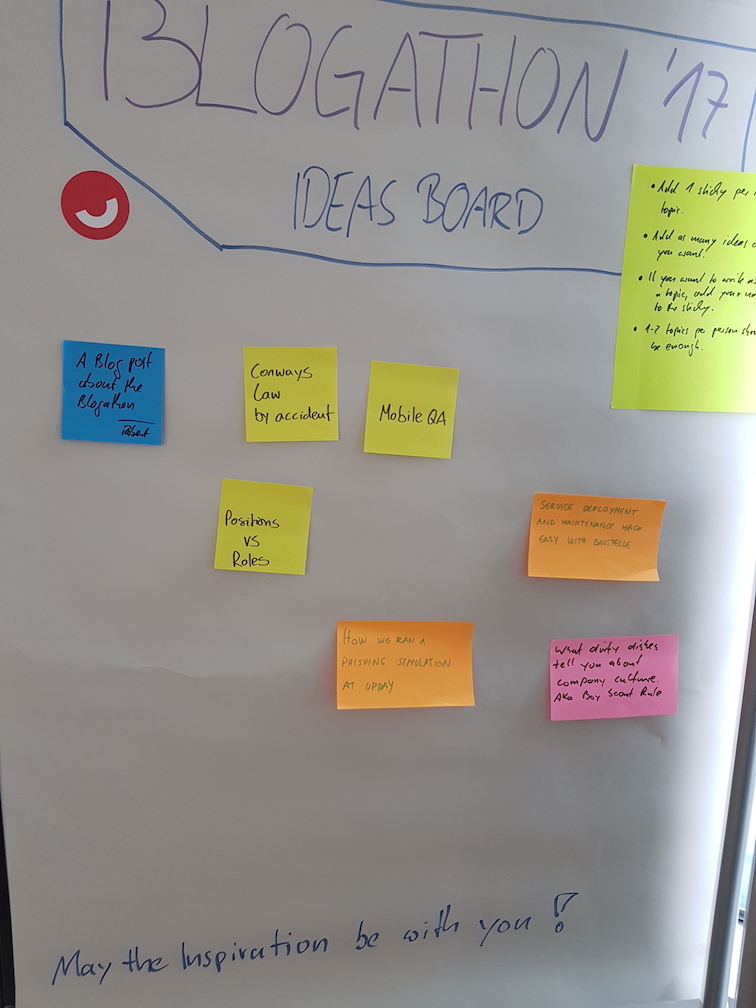 BLOGATHON '17
IDEAS BOARD
• Add 1 sticky per
topic.
• Add as many ideas
you want.
• If you want to write
a topic, add your
to the sticky.
• 1-2 topics per person
be enough.
A Blog post
about the
Blogathon
Robert
Conways
Law
by accident
Mobile QA
Positions
vs
Roles
SERVICE DEPLOYMENT
AND MAINTENANCE MADE
EASY WITH BAUSTELLE
HOW WE RAN A
PHISHING SIMULATION
AT UPDAY
What dirty dishes
tell you about
company culture.
AKA Boy Scout Rule
May the Inspiration be with you!